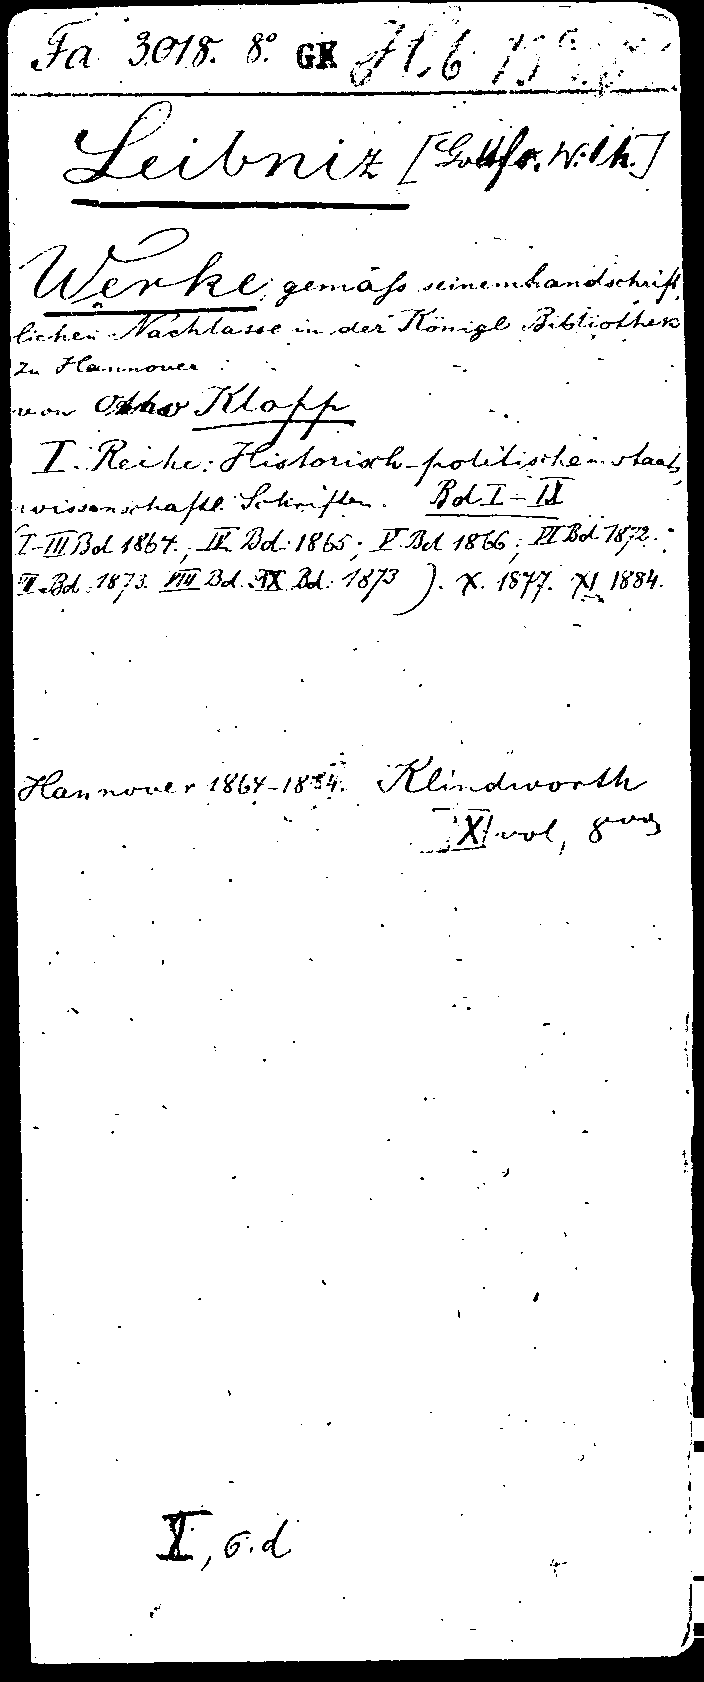 Fa 3018. 8º GK
Leibniz [Gottfr. Wilh.]
Werke, gemäss seinem handschrift,
lichen Nachlasse in der Königl Bibliothek
zu Hannover
von Otto Klopp
I. Reihe: Historisch-politische u. staats,
wissenschaftl. Schriften. Bd I–IX
I–III Bd 1864.; IV Bd. 1865; V. Bd 1866; VI Bd 1872.
Bd. 1873. VIII Bd. IX Bd. 1873). X. 1877. XI 1884.
Hannover 1864–1884. Klindworth
XI vol,
X, 6.d